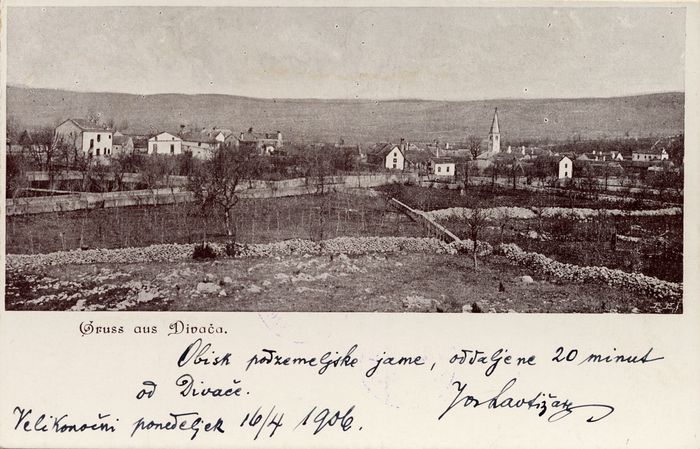 Gruss aus Divača.
Obisk podzemeljske jame, oddaljene 20 minut
od Divače.
Velikonočni ponedeljek 16/4 1906.